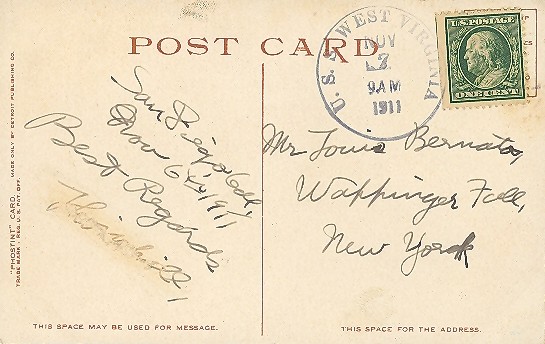 POST CARD
U.S.S. WEST VIRGINIA
NOV
7
9AM
1911
U.S. POSTAGE
ONE CENT
San Diego Cal,
1911
Best Regards
Mr Louis
Wappinger Fall,
New York
"PHOSTINT" CARD. MADE ONLY BY DETROIT PUBLISHING CO.
TRADE MARK - REG. U.S. PAT. OFF.
THIS SPACE MAY BE USED FOR MESSAGE.
THIS SPACE FOR THE ADDRESS.